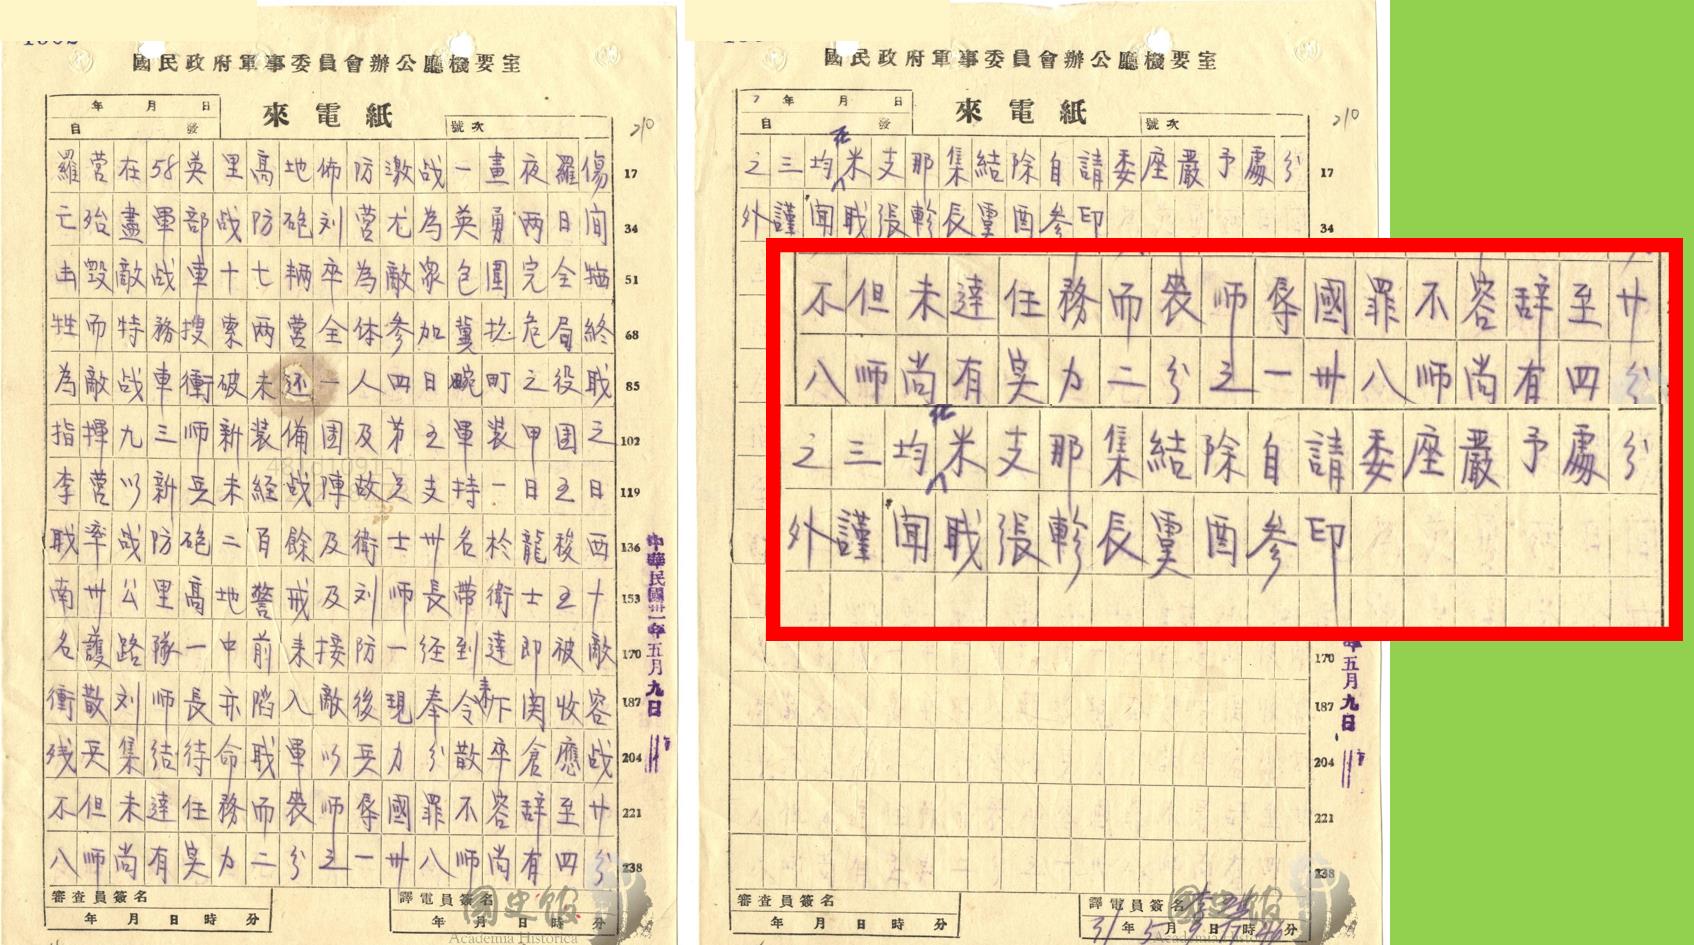 國民政府軍事委員會辦公廳機要室
年 月 日
來電紙
自 發
號次
210
羅营在58英里高地佈防激战一晝夜羅傷 17
亡殆盡軍部战防砲刘营尤為英勇两日间 34
击毁敵战車十七辆卒為敵眾包圍完全牺 51
牲而特務搜索两营全体参加冀挽危局終 68
為敵战車衝破未还一人四日畹町之役戝 85
指揮九三师新装備團及第五軍装甲团之 102
李营以新兵未経战陣故只支持一日五日 119
戝率战防砲二百餘及衛士卅名於龍稜西 136
南卅公里高地警戒及刘师長带衛士五十 153
名護路隊一中前来接防一经到達即被敵 170
衝散刘师長亦陷入敵後現奉令来下関收容 187
残兵集结待命戝軍以兵力分散卒倉應战 204
不但未達任務而丧师辱國罪不容辞至廿 221
八师尚有实力二分之一卅八师尚有四分 238
中華民國卅一年五月九日
審查員簽名
年 月 日 時 分
譯電員簽名
年 月 日 時 分
國史館
Academia Historica
國民政府軍事委員會辦公廳機要室
7 年 月 日
來電紙
自 發
號次
210
之三均在米支那集結除自請委座嚴予處分 17
外謹闻戝張軫長雲酉参印 34
不但未達任務而丧师辱國罪不容辞至廿
八师尚有实力二分之一卅八师尚有四分
之三均在米支那集結除自請委座嚴予處分
外謹闻戝張軫長雲酉参印
170
187
204
221
238
年五月九日
審查員簽名
年 月 日 時 分
譯電員簽名
31年5月9日17時
國史館
Academia Historica